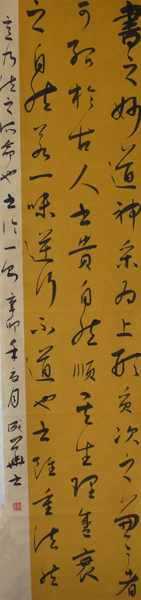 書之妙道神采為上形質次之兼之者
可紹於古人書貴自然順其生理遇衰
之自然若一味造作不道也書雖重法然
意乃法之所命也書論一則 辛卯年百月 成華書